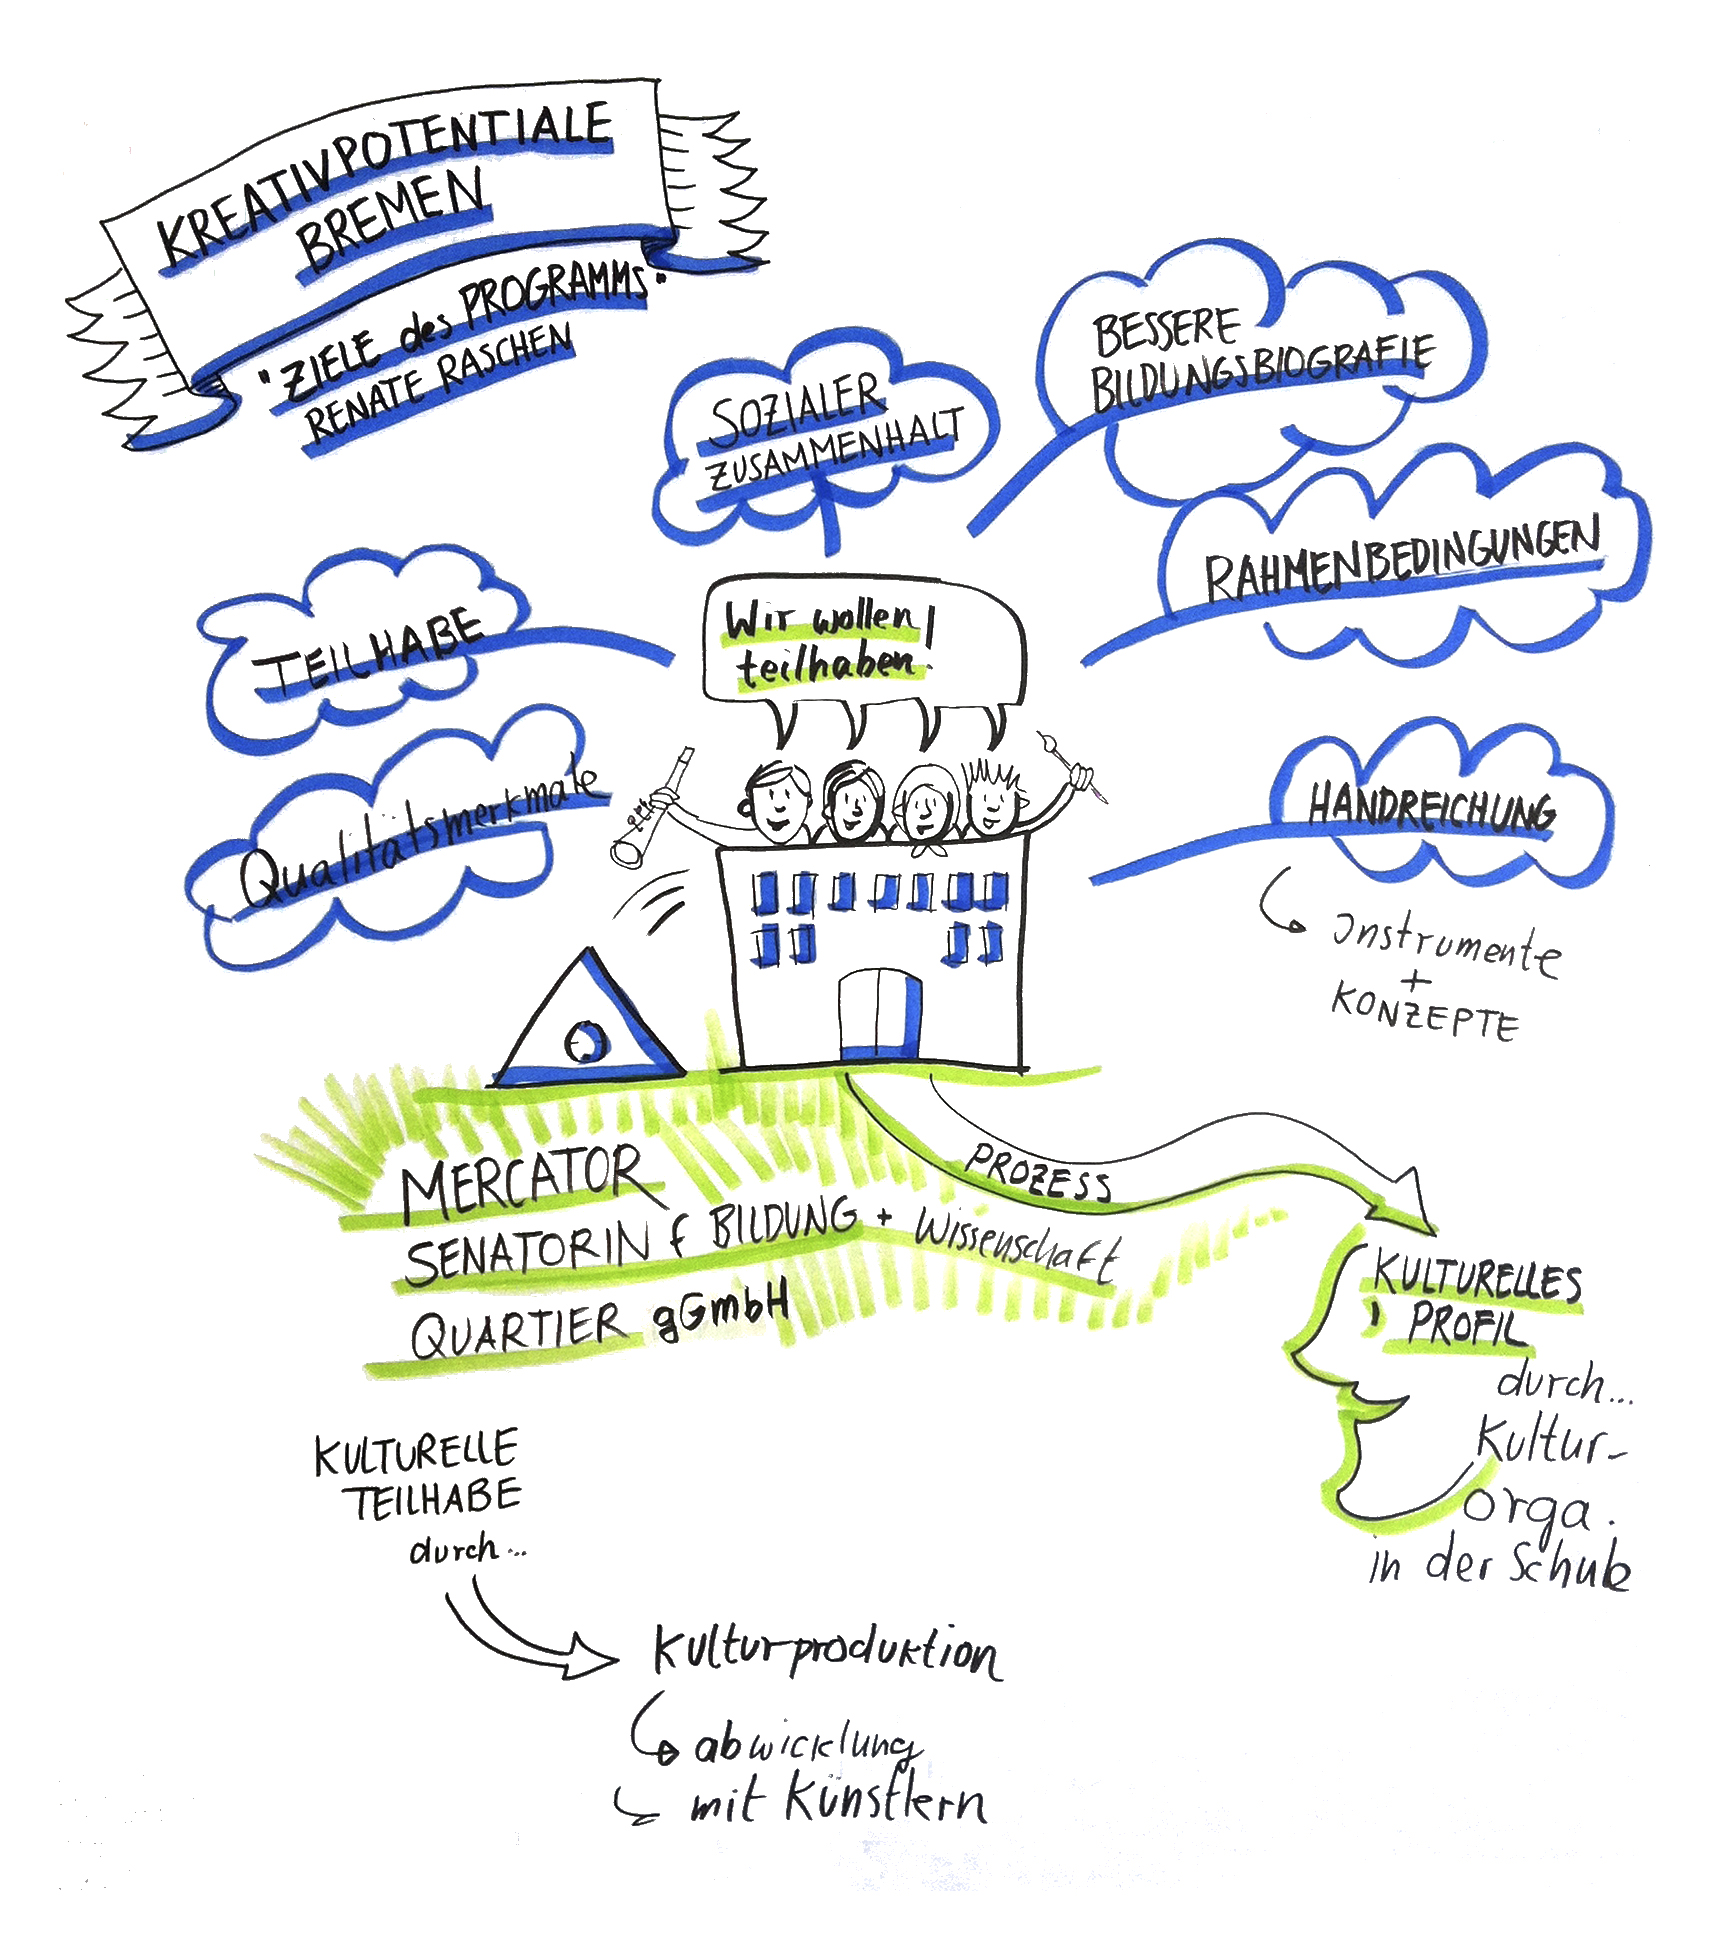 KREATIVPOTENTIALE
BREMEN
"ZIELE des PROGRAMMS"
RENATE RASCHEN
SOZIALER
ZUSAMMENHALT
BESSERE
BILDUNGSBIOGRAFIE
RAHMENBEDINGUNGEN
TEILHABE
Qualitätsmerkmale
Wir wollen
teilhaben!
HANDREICHUNG
Instrumente
+
KONZEPTE
MERCATOR
SENATORIN f BILDUNG + Wissenschaft
QUARTIER gGmbH
PROZESS
KULTURELLES
PROFIL
durch...
Kultur-
orga.
in der Schule
KULTURELLE
TEILHABE
durch...
Kulturproduktion
abwicklung
mit Künstlern